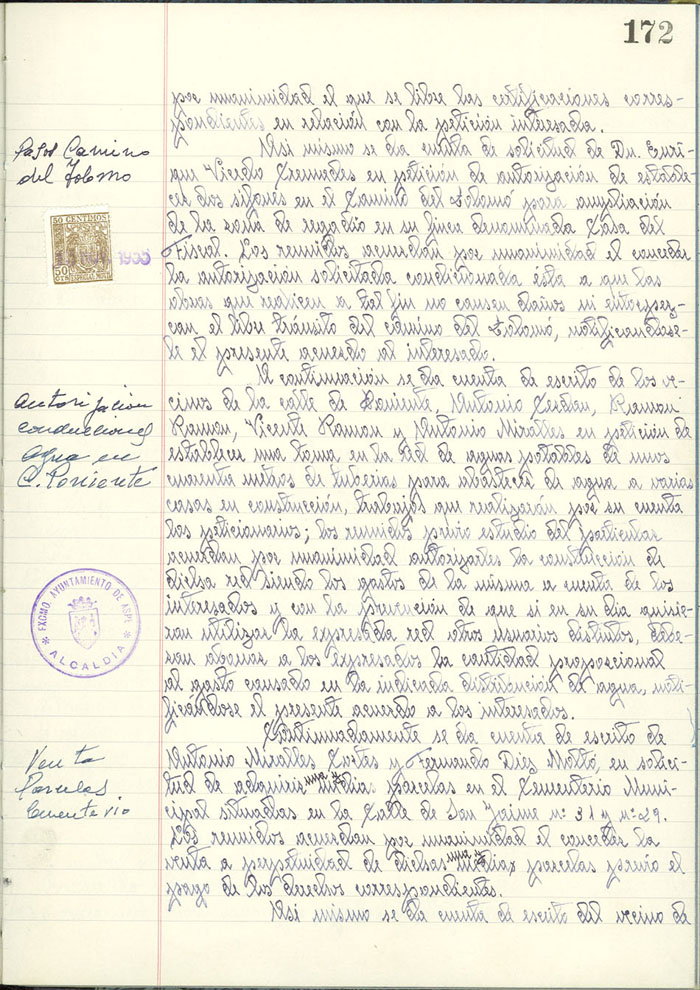 172
por unanimidad el que se libre las certificaciones corres-
pondientes en relación con la petición interesada.
Pasos Camino
del Tolomo
Asi mismo se da cuenta de solicitud de Dn. Enri-
que Vicedo Cremades en petición de autorización de estable-
cer dos sifones en el Camino del Tolomó para ampliación
de la zona de regadío en su finca denominada Casa del
Fiscal. Los reunidos acuerdan por unanimidad el conceder
la autorización solicitada condicionada ésta a que las
obras que realicen a tal fin no causen daños ni entorpez-
can el libre tránsito del camino del Tolomó, notificandose-
le el presente acuerdo al interesado.
50 CENTIMOS
50
1955
Autorizacion
conducciones
agua en
C. Poniente
A continuación se da cuenta de escrito de los ve-
cinos de la calle de Poniente, Antonio Cerdan, Ramon
Ramon, Vicente Ramon y Antonio Miralles en petición de
establecer una toma en la red de aguas potables de unos
cuarenta metros de tuberias para abastecer de agua a varias
casas en construcción, trabajos que realizarán por su cuenta
los peticionarios; los reunidos previo estudio del particular
acuerdan por unanimidad autorizarles la construcción de
dicha red siendo los gastos de la misma a cuenta de los
interesados y con la prevención de que si en su dia quisie-
ran utilizar la expresada red otros usuarios distintos, debe-
ran abonar a los expresados la cantidad proporcional
al gasto causado en la indicada distribución de agua, noti-
ficándose el presente acuerdo a los interesados.
EXCMO AYUNTAMIENTO DE ASPE
ALCALDIA
Venta
Parcelas
Cementerio
Continuadamente se da cuenta de escrito de
Antonio Miralles Cortas y Fernando Diez Moltó, en solici-
tud de adquirir una y medias parcelas en el Cementerio Muni-
cipal situadas en la Calle de San Jaime nº 31 y nº 29.
Los reunidos acuerdan por unanimidad el conceder la
venta a perpetuidad de dichas una y medias parcelas previo el
pago de los derechos correspondientes.
Asi mismo se da cuenta de escrito del vecino de